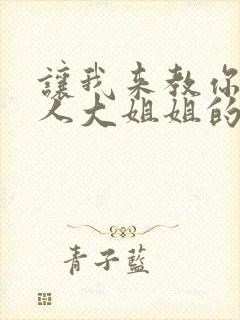 讓我来教你
人犬姐姐的
青子藍